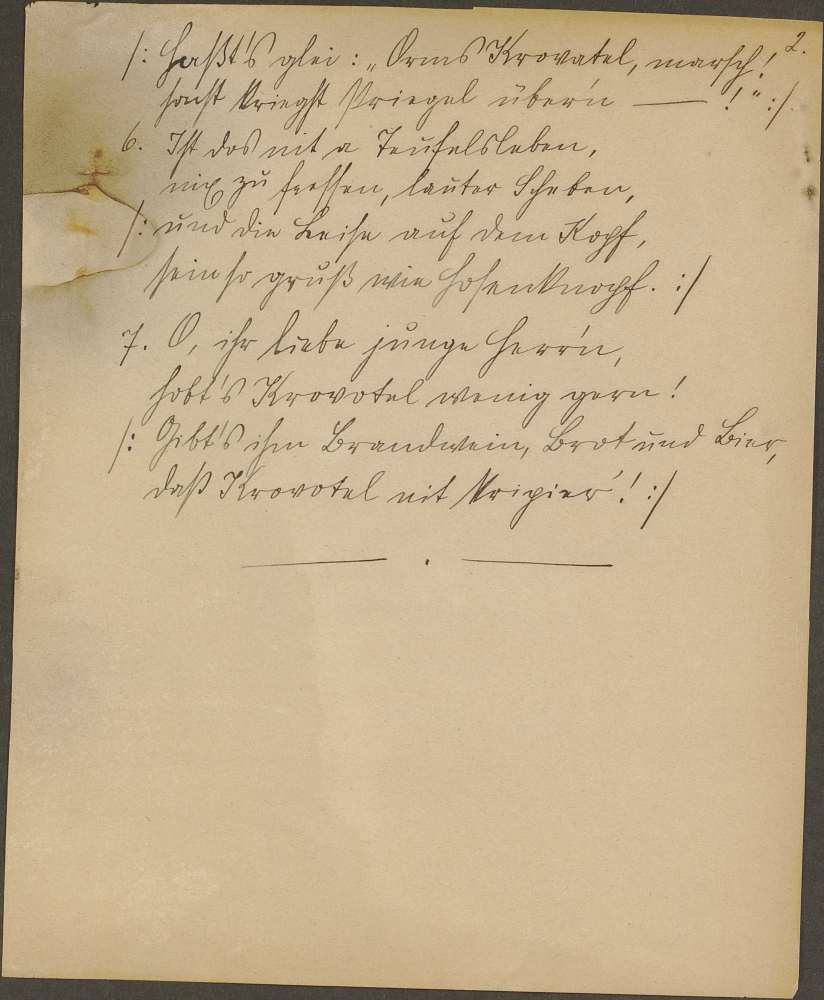 2.
/: Haßt's glei: „Orms Krovatel, marsch!
sonst krieghst Priegel über'n — !" :/
6. Ist dos nit a Teufelsleben,
nix zu fressen, lauter Scheben,
/: und die Leise auf dem Kopf,
sein so gruß wie Hosenknopf. :/
7. O, ihr liebe junge Herr'n,
hobt's Krovotel wenig gern!
/: Gibt's ihm Brandwein, Brot und Bier,
daß Krovotel nit kripier'! :/